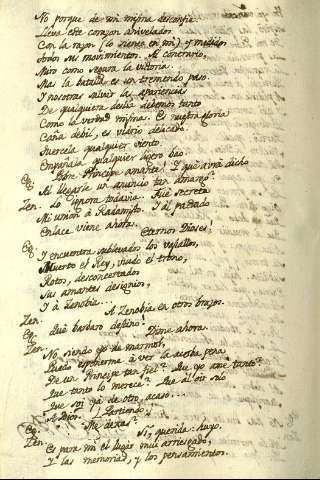 No porque de mi misma desconfie.
Lleva este corazon anivelados
Con la razon (lo siento en mi) y medidos
todos sus movimientos. Al contrario,
Miro como segura la victoria.
Mas la batalla es un tremendo paso.
Y nosotras salvar las apariencias
De qualquiera dicha debemos tanto
Como la verdad misma. Es nuestra gloria
Caña debil, es vidrio delicado.
Tuercela qualquier viento
Empañala qualquier ligero bao
Eg. Pobre Principe amante! Y qué amor dicho
Al llegaría un anuncio tan amargo?
Zen. Lo ignora todavia. Fué secreta
Mi union à Radamisto. Y al pactado
Enlace viene ahora.
Eg. Eternos Dioses!
Y encuentra sublevados los vasallos,
Muerto el Rey, viudo el trono,
Rotos, desconcertados
Sus amantes designios,
Y à Zenobia...
Zen. A Zenobia en otros brazos.
Eg. Què barbaro destino!
Zen. Dime ahora.
No siendo yo de marmol,
Puedo exponerme à ver la acerba pena
De un Principe tan fiel? Que yo amé tanto?
Que tanto lo merece? Que al oir niò
Que soy ya de otro acaso....
A Dios. Partiendo.
Eg. Me dexas?
Zen. Si, querida: huyo.
Es para mi el lugar muy arriesgado,
Y las memorias, y los pensamientos.